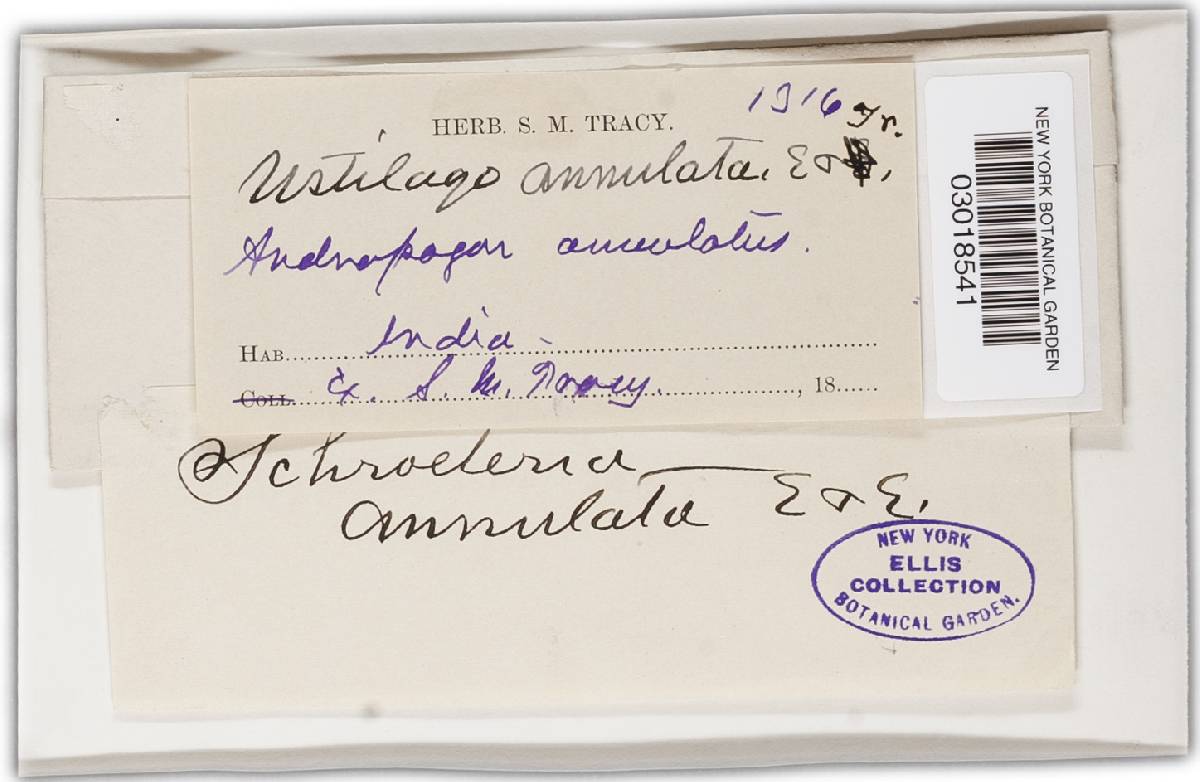 1916 Tr.
HERB. S. M. TRACY.
Ustilago annulata. E & E,
Andropogon annulatus.
HAB. India -
COLL. Ex. S. M. Tracy. , 18
NEW YORK BOTANICAL GARDEN
03018541
Schroeteria
annulata E & E.
NEW YORK
ELLIS
COLLECTION
BOTANICAL GARDEN.